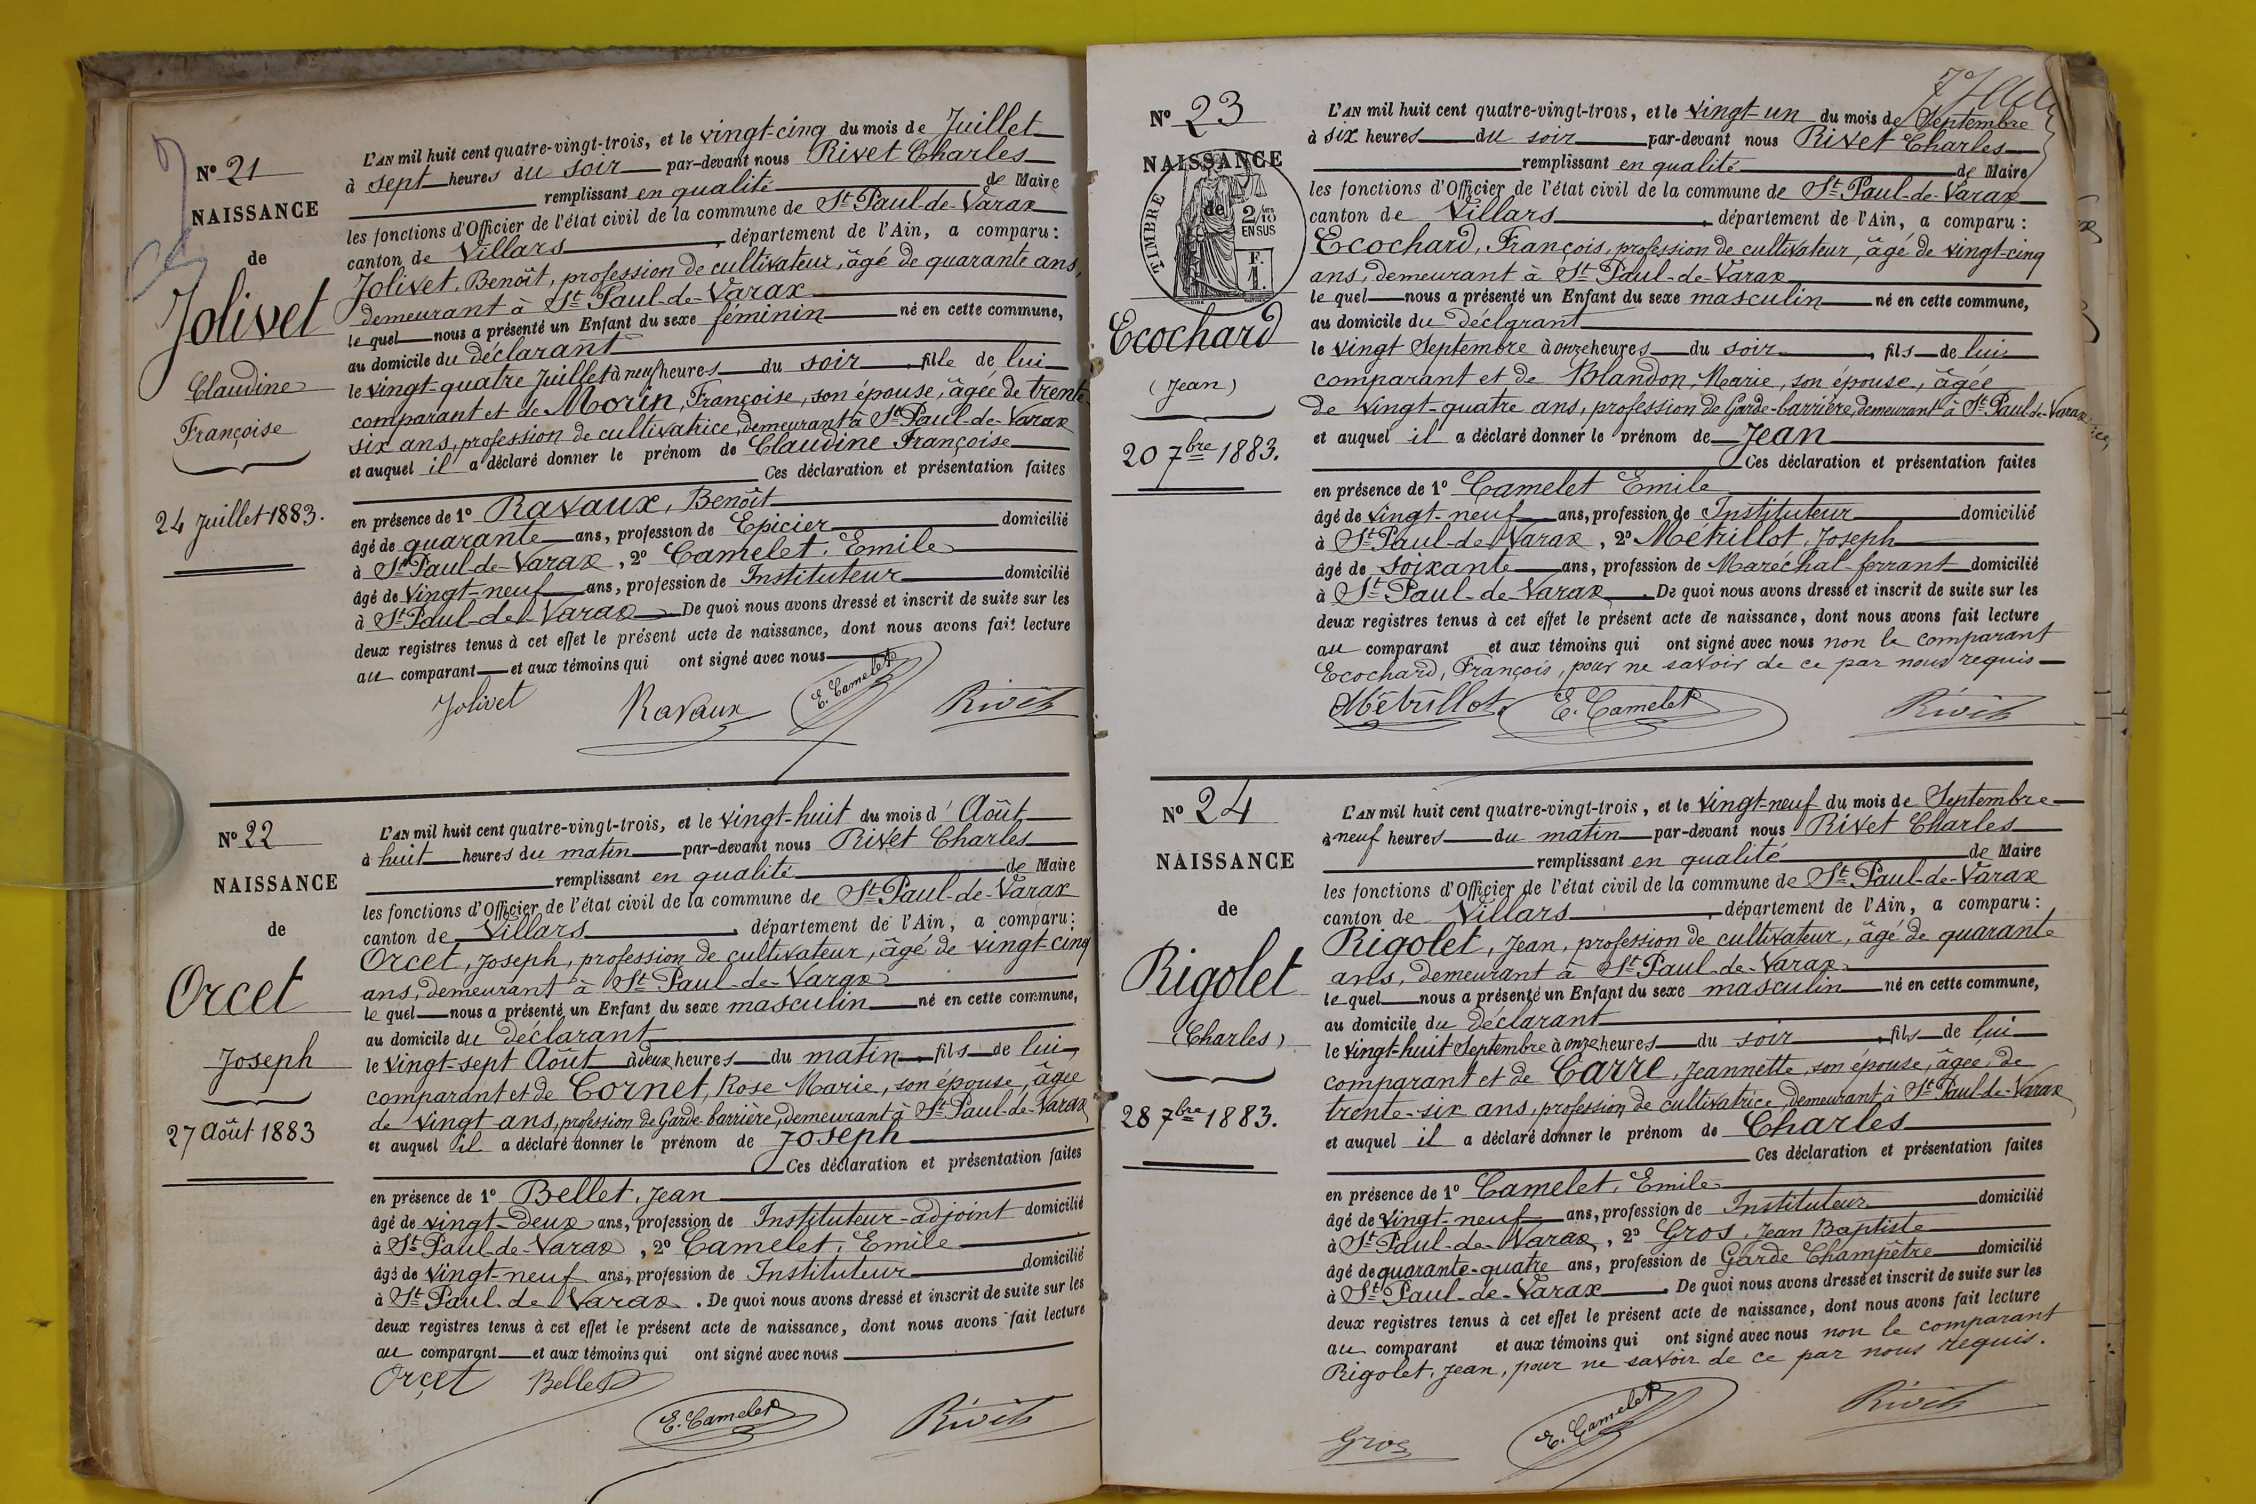 N° 21
NAISSANCE
de
Jolivet
Claudine
Françoise
24 Juillet 1883.
L'AN mil huit cent quatre-vingt-trois, et le vingt-cinq du mois de Juillet
à sept heures du soir par-devant nous Rivet Charles
remplissant en qualité de Maire
les fonctions d'Officier de l'état civil de la commune de St Paul-de-Varax
canton de Villars, département de l'Ain, a comparu :
Jolivet, Benoît, profession de cultivateur, âgé de quarante ans,
demeurant à St Paul-de-Varax
le quel nous a présenté un Enfant du sexe féminin né en cette commune,
au domicile du déclarant
le vingt-quatre Juillet à neuf heures du soir, fille de lui
comparant et de Morin, Françoise, son épouse, âgée de trente-
six ans, profession de cultivatrice, demeurant à St Paul-de-Varax
et auquel il a déclaré donner le prénom de Claudine Françoise
Ces déclaration et présentation faites
en présence de 1° Ravaux, Benoît
âgé de quarante ans, profession de Epicier domicilié
à St Paul-de-Varax, 2° Camelet, Emile
âgé de vingt-neuf ans, profession de Instituteur domicilié
à St Paul-de-Varax. De quoi nous avons dressé et inscrit de suite sur les
deux registres tenus à cet effet le présent acte de naissance, dont nous avons fait lecture
au comparant et aux témoins qui ont signé avec nous
Jolivet Ravaux E. Camelet Rivet
N° 22
NAISSANCE
de
Orcet
Joseph
27 Août 1883
L'AN mil huit cent quatre-vingt-trois, et le vingt-huit du mois d'Août
à huit heures du matin par-devant nous Rivet Charles
remplissant en qualité de Maire
les fonctions d'Officier de l'état civil de la commune de St Paul-de-Varax
canton de Villars, département de l'Ain, a comparu :
Orcet, Joseph, profession de cultivateur, âgé de vingt-cinq
ans, demeurant à St Paul-de-Varax
le quel nous a présenté un Enfant du sexe masculin né en cette commune,
au domicile du déclarant
le vingt-sept Août à deux heures du matin, fils de lui
comparant et de Cornet, Rose Marie, son épouse, âgée
de vingt ans, profession de Garde-barrière, demeurant à St Paul-de-Varax
et auquel il a déclaré donner le prénom de Joseph
Ces déclaration et présentation faites
en présence de 1° Bellet, Jean
âgé de vingt-deux ans, profession de Instituteur-adjoint domicilié
à St Paul-de-Varax, 2° Camelet, Emile
âgé de vingt-neuf ans, profession de Instituteur domicilié
à St Paul-de-Varax. De quoi nous avons dressé et inscrit de suite sur les
deux registres tenus à cet effet le présent acte de naissance, dont nous avons fait lecture
au comparant et aux témoins qui ont signé avec nous
Orcet Bellet
E. Camelet Rivet
N° 23
NAISSANCE
de
TIMBRE
2/10es
EN SUS
F.
1.
Ecochard
(Jean)
20 7bre 1883.
L'AN mil huit cent quatre-vingt-trois, et le vingt-un du mois de Septembre
à six heures du soir par-devant nous Rivet Charles
remplissant en qualité de Maire
les fonctions d'Officier de l'état civil de la commune de St Paul-de-Varax
canton de Villars, département de l'Ain, a comparu :
Ecochard, François, profession de cultivateur, âgé de vingt-cinq
ans, demeurant à St Paul-de-Varax
le quel nous a présenté un Enfant du sexe masculin né en cette commune,
au domicile du déclarant
le vingt Septembre à onze heures du soir, fils de lui
comparant et de Blandon, Marie, son épouse, âgée
de vingt-quatre ans, profession de Garde-barrière, demeurant à St Paul-de-Varax
et auquel il a déclaré donner le prénom de Jean
Ces déclaration et présentation faites
en présence de 1° Camelet Emile
âgé de vingt-neuf ans, profession de Instituteur domicilié
à St Paul-de-Varax, 2° Métrillot, Joseph
âgé de soixante ans, profession de Maréchal-ferrant domicilié
à St Paul-de-Varax. De quoi nous avons dressé et inscrit de suite sur les
deux registres tenus à cet effet le présent acte de naissance, dont nous avons fait lecture
au comparant et aux témoins qui ont signé avec nous non le comparant
Ecochard, François, pour ne savoir de ce par nous requis
Métrillot E. Camelet Rivet
N° 24
NAISSANCE
de
Rigolet
(Charles)
28 7bre 1883.
L'AN mil huit cent quatre-vingt-trois, et le vingt-neuf du mois de Septembre
à neuf heures du matin par-devant nous Rivet Charles
remplissant en qualité de Maire
les fonctions d'Officier de l'état civil de la commune de St Paul-de-Varax
canton de Villars, département de l'Ain, a comparu :
Rigolet, Jean, profession de cultivateur, âgé de quarante
ans, demeurant à St Paul-de-Varax
le quel nous a présenté un Enfant du sexe masculin né en cette commune,
au domicile du déclarant
le vingt-huit Septembre à onze heures du soir, fils de lui
comparant et de Carre, Jeannette, son épouse, âgée, de
trente-six ans, profession de cultivatrice, demeurant à St Paul-de-Varax
et auquel il a déclaré donner le prénom de Charles
Ces déclaration et présentation faites
en présence de 1° Camelet, Emile
âgé de vingt-neuf ans, profession de Instituteur domicilié
à St Paul-de-Varax, 2° Gros, Jean Baptiste
âgé de quarante-quatre ans, profession de Garde Champêtre domicilié
à St Paul-de-Varax. De quoi nous avons dressé et inscrit de suite sur les
deux registres tenus à cet effet le présent acte de naissance, dont nous avons fait lecture
au comparant et aux témoins qui ont signé avec nous non le comparant
Rigolet, Jean, pour ne savoir de ce par nous requis.
Gros E. Camelet Rivet